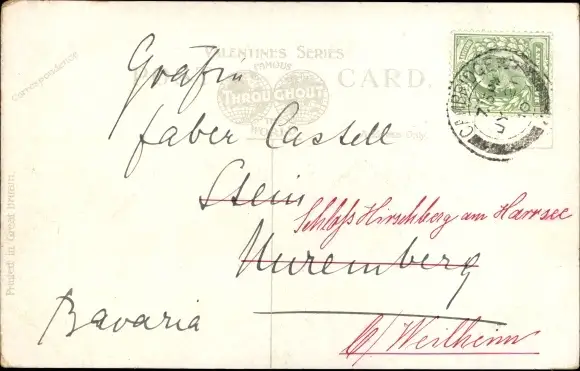 Correspondence
VALENTINES SERIES
FAMOUS
THROUGHOUT
WORLD
CARD.
Only.
CAMBRIDGE
Printed in Great Britain.
Gräfin
Faber Castell
Stein
Schloß Hirschberg am Haarsee
Nuremberg
Bavaria
b/ Weilheim